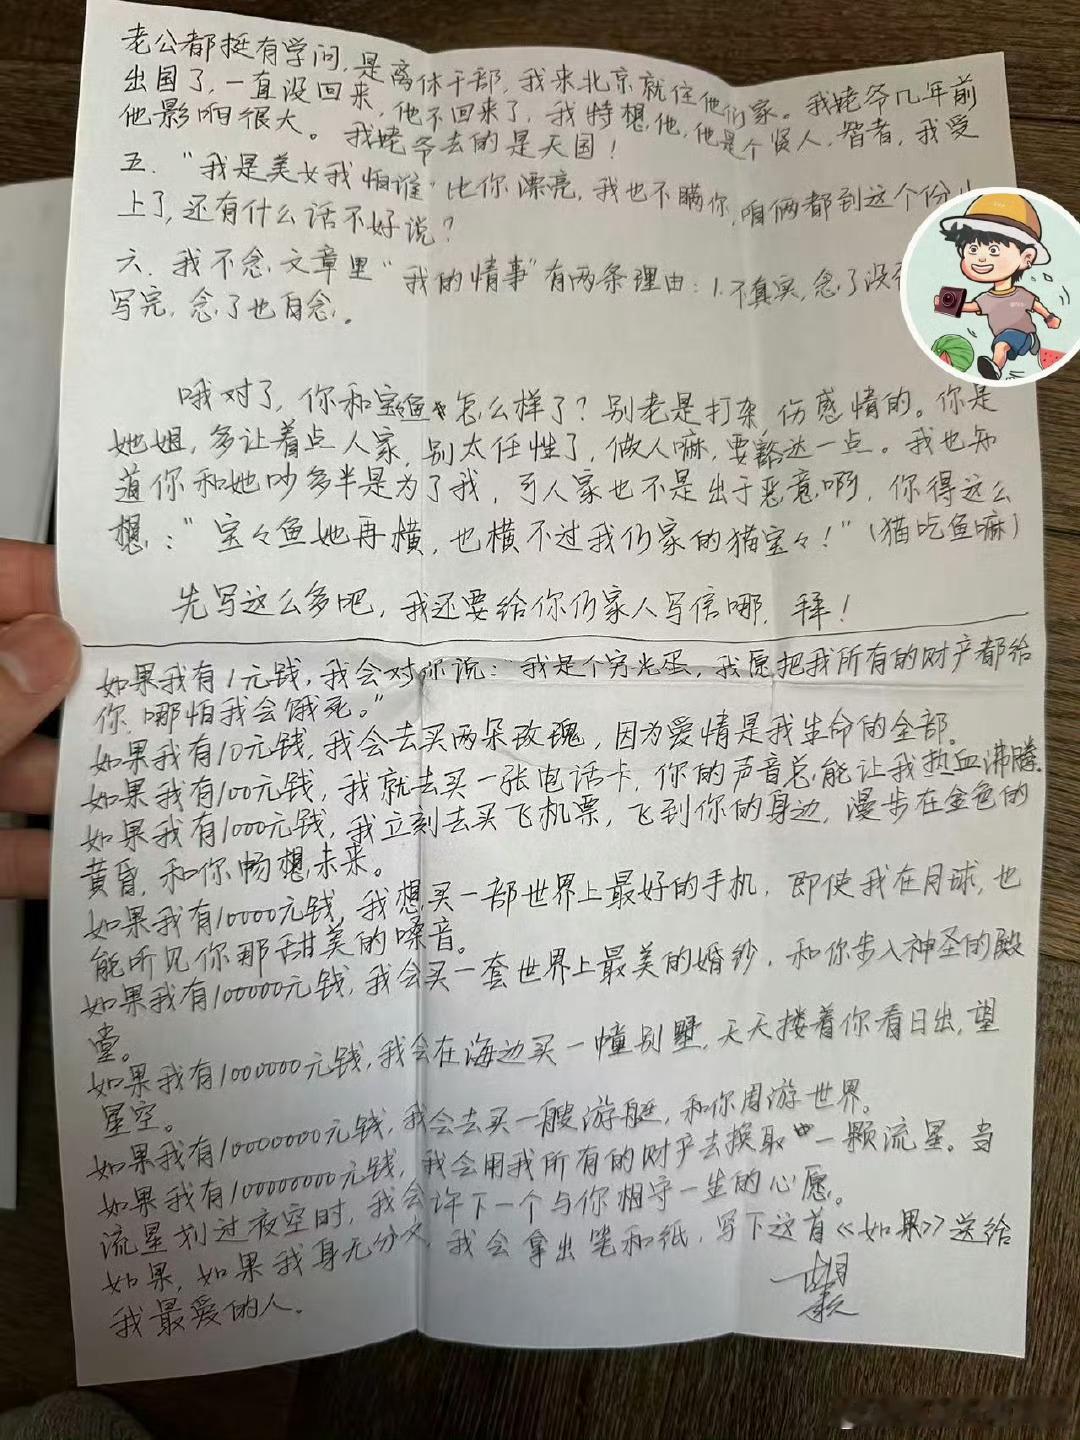 老公都挺有学问，是离休干部，我来北京就住他们家。我姥爷几年前
出国了，一直没回来，他不回来了，我特想他，他是个贤人，智者，我受
他影响很大。我姥爷去的是天国！
五．“我是美女我怕谁”比你漂亮，我也不瞒你，咱俩都到这个份
上了，还有什么话不好说？
六．我不念文章里“我的情事”有两条理由：1.不真实，念了没
写完，念了也白念。
哦对了，你和宝々鱼怎么样了？别老是打杂，伤感情的。你是
她姐，多让着点人家，别太任性了，做人嘛，要豁达一点。我也知
道你和她吵多半是为了我，可人家也不是出于恶意啊，你得这么
想：“宝々鱼她再横，也横不过我们家的猫宝々！”（猫吃鱼嘛）
先写这么多吧，我还要给你们家人写信哪，拜！
如果我有1元钱，我会对你说：“我是个穷光蛋，我愿把我所有的财产都给
你，哪怕我会饿死。”
如果我有10元钱，我会去买两朵玫瑰，因为爱情是我生命的全部。
如果我有100元钱，我就去买一张电话卡，你的声音总能让我热血沸腾。
如果我有1000元钱，我立刻去买飞机票，飞到你的身边，漫步在金色的
黄昏，和你畅想未来。
如果我有10000元钱，我想买一部世界上最好的手机，即使我在月球，也
能听见你那甜美的嗓音。
如果我有100000元钱，我会买一套世界上最美的婚钞，和你步入神圣的殿
堂。
如果我有1000000元钱，我会在海边买一幢别墅，天天搂着你看日出，望
星空。
如果我有10000000元钱，我会去买一艘游艇，和你周游世界。
如果我有100000000元钱，我会用我所有的财产去换取一颗流星。当
流星划过夜空时，我会许下一个与你相守一生的心愿。
如果，如果我身无分文，我会拿出笔和纸，写下这首《如果》送给
我最爱的人。